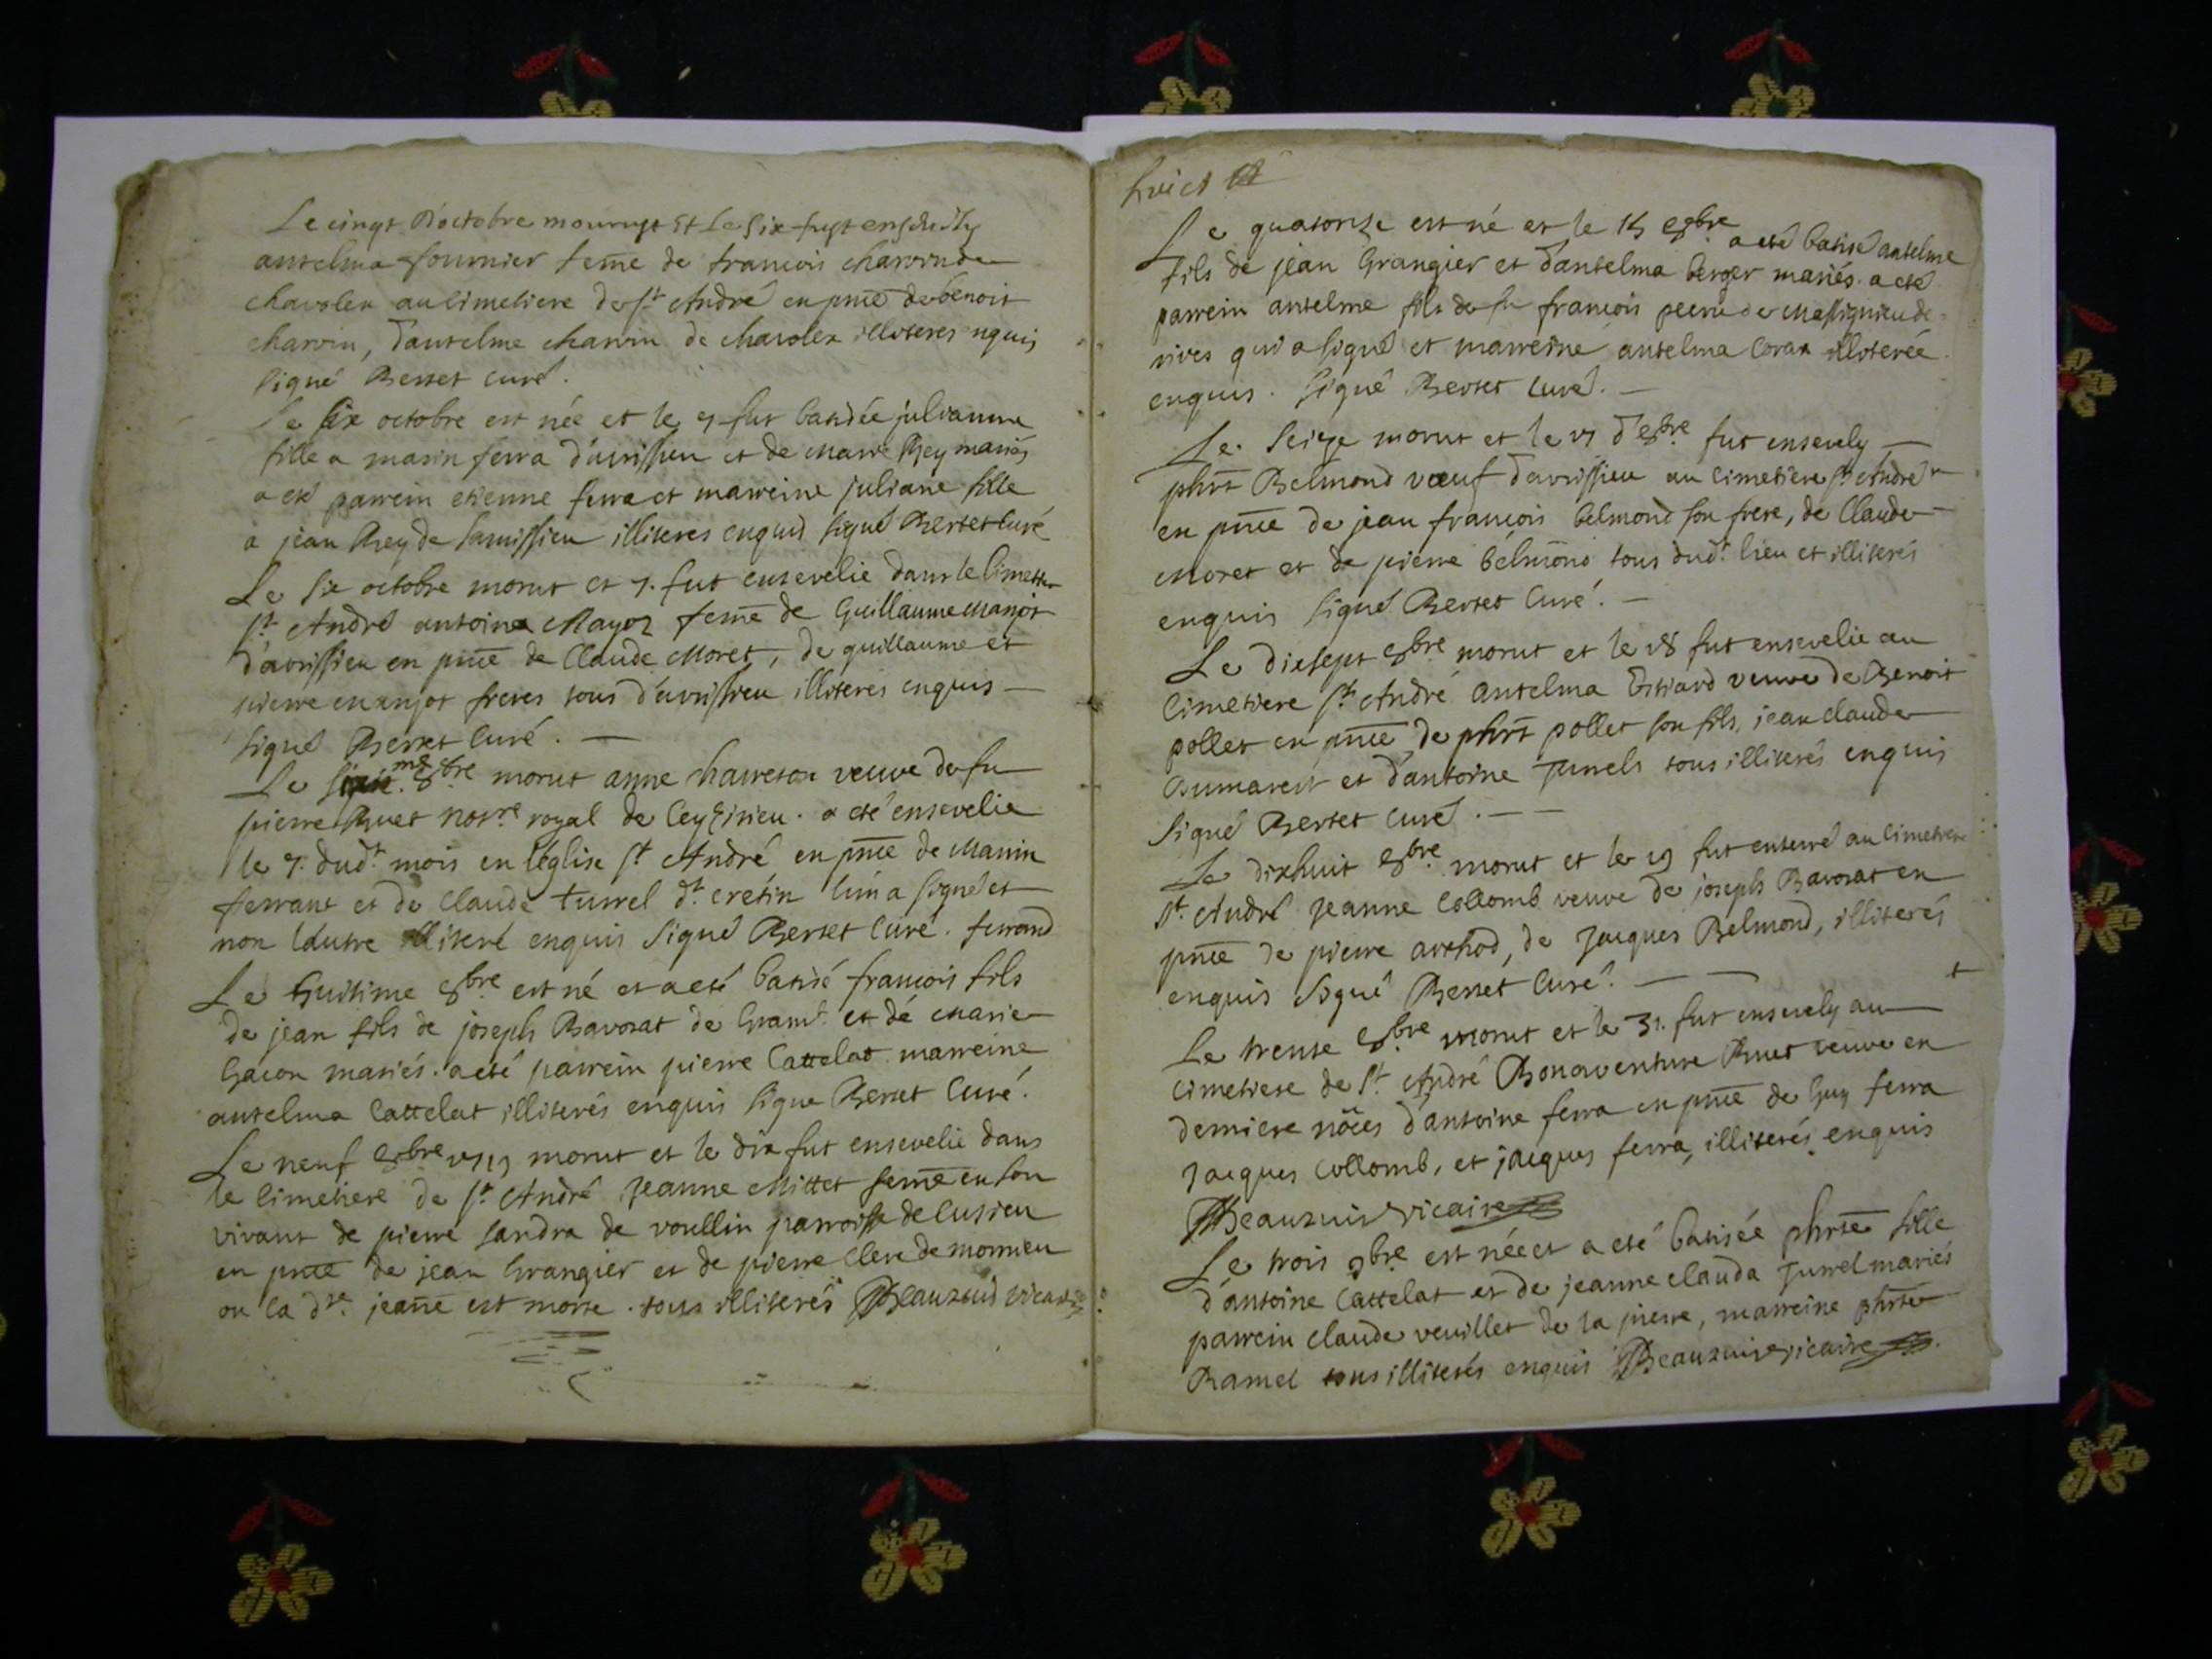 Le cinqt d'octobre mourust et le six fust ensevely
antelma fournier feme de francois charvin de
chavolex au cimetiere de st André en pnce de benoit
charvin, d'antelme charvin de chavolex illiteres nquis
signé Berset curé.
Le six octobre est née et le 7 fut batisée julianne
fille a marin ferra d'avrissieu et de marie Rey mariés
a eté parrein etienne ferra et marreine juliane fille
a jean Rey de illiteres enquis signé Berset curé
Le six octobre morut et 7. fut ensevelie dans le cimett
st. André antoina Mayoz feme de Guillaume manjot
d'avrissieu en pnce de Claude Moret, de guillaume et
pierre manjot freres tous d'avrissieu illiteres enquis
signé Berset curé.
Le sixieme 8bre morut anne veuve de fu
pierre Ruet nosre royal de Ceyzirieu. a eté ensevelie
le 7. dudt mois en l'église st André en pnce de Marin
ferrant et de Claude turrel dt. cretin l'un a signé et
non l'autre illiteré enquis signé Berset curé. ferrand
Le huitime 8bre est né et a eté batisé francois fils
de jean fils de joseph Bavozat de et de marie
Gacon mariés. a eté parrein pierre Cattelat marreine
antelma Cattelat illiterés enquis signe Berset curé.
Le neuf 8bre 1719 morut et le dix fut ensevelie dans
le cimetiere de st. André Jeanne Mittet feme en son
vivant de pierre landra de voullin parroisse de Cusieu
en pnce de jean Grangier et de pierre Clerc de mornieu
ou la dte. jeane est morte. tous illiterés Beauzuis vicaire
huict
Le quatorze est né et le 15 8bre a eté batisé antelme
fils de jean Grangier et d'antelma berger mariés. a eté
parrein antelme fils de fu francois de Massignieu de
rives qui a signé et marreine antelma Corax illiterée
enquis. signé Berset curé.
Le. Seize morut et le 17 d'8bre fut ensevely
phrt Belmond voeuf d'avrissieu au cimetiere st André
en pnce de jean francois belmond son frere, de Claude
Moret et de pierre belmond tous dudt. lieu et illiterés
enquis signé Berset curé.
Le dixsept 8bre morut et le 18 fut ensevelie au
cimetiere st. André antelma veuve de Benoit
pollet en pnce de phrt pollet son fils, jean claude
Dumarest et d'antoine tous illiterés enquis
signé Berset curé.
Le dixhuit 8bre morut et le 19 fut enterré au cimetiere
st. André Jeanne Collomb veuve de joseph Bavozat en
pnce de pierre arthod, de Jacques Belmond, illiterés
enquis signé Berset curé.
Le trente 8bre morut et le 31. fut ensevely au
cimetiere de st. André Bonaventure Ruet veuve en
derniere nöces d'antoine ferra en pnce de Guy ferra
Jacques Collomb, et jacques ferra, illiterés enquis
Beauzuis vicaire
Le trois 9bre est née et a eté batisée phrte fille
d'antoine Cattelat et de jeanne clauda Turrel mariés
parrein claude veuillet de la pierre, marreine phrte
Ramel tous illiterés enquis Beauzuis vicaire